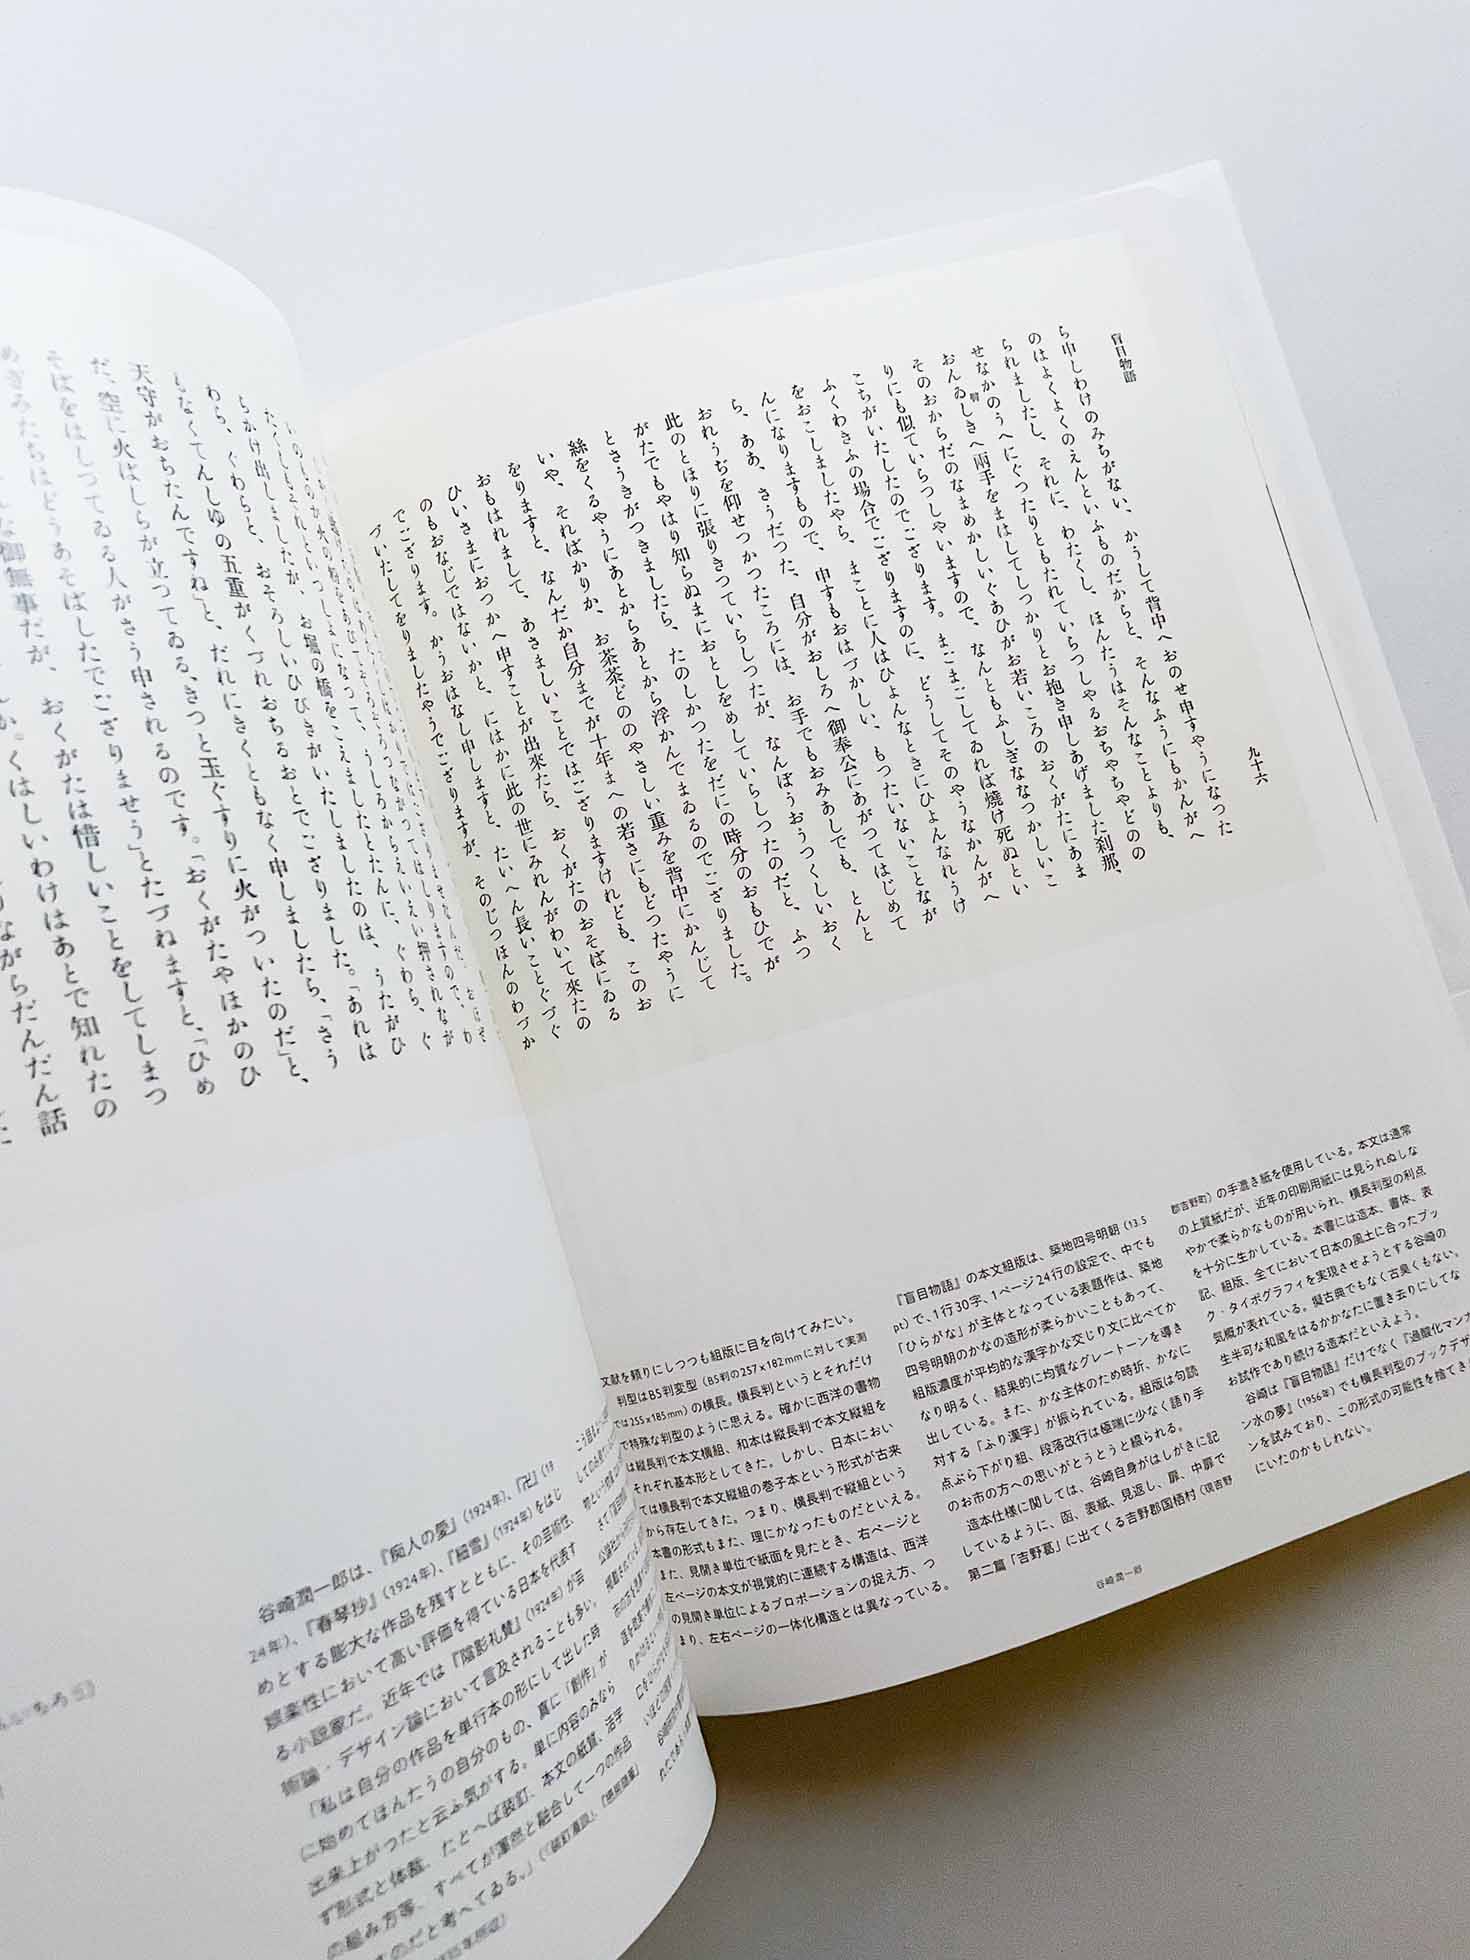 盲目物語
九十六
ら申しわけのみちがない、かうして背中へおのせ申すやうになつた
のはよくよくのえんといふものだからと、そんなふうにもかんがへ
られましたし、それに、わたくし、ほんたうはそんなことよりも、
せなかのうへにぐつたりともたれていらつしやるおちやちやどのの
おんゐしきへ兩手をまはしてしつかりとお抱き申しあげました刹那、
そのおからだのなまめかしいぐあひがお若いころのおくがたにあま
りにも似ていらつしやいますので、なんともふしぎななつかしいこ
こちがいたしたのでござります。まごまごしてゐれば燒け死ぬとい
ふくわきふの場合でござりますのに、どうしてそのやうなかんがへ
をおこしましたやら、まことに人はひよんなときにひよんなれうけ
んになりますもので、申すもおはづかしい、もつたいないことなが
ら、ああ、さうだつた、自分がおしろへ御奉公にあがつてはじめて
おれうぢを仰せつかつたころには、お手でもおみあしでも、とんと
此のとほりに張りきつていらしつたが、なんぼうおうつくしいおく
がたでもやはり知らぬまにおとしをめしていらしつたのだと、ふつ
とさうきがつきましたら、たのしかつたをだにの時分のおもひでが
絲をくるやうにあとからあとから浮かんでまゐるのでござりました。
いや、そればかりか、お茶茶どののやさしい重みを背中にかんじて
をりますと、なんだか自分までが十年まへの若さにもどつたやうに
おもはれまして、あさましいことではござりますけれども、このお
ひいさまにおつかへ申すことが出來たら、おくがたのおそばにゐる
のもおなじではないかと、にはかに此の世にみれんがわいて來たの
でござります。かうおはなし申しますと、たいへん長いことぐづぐ
づいたしてをりましたやうでござりますが、そのじつほんのわづか
たくししましたが、お堀の橋をこえましたとたんに、ぐわら、ぐ
わら、ぐわらと、おそろしいひびきがいたしましたのは、うたがひ
もなくてんしゆの五重がくづれおちるおとでござりました。「あれは
天守がおちたんですね」と、だれにきくともなく申しましたら、「さう
だ、空に火ばしらが立つてゐる、きつと玉ぐすりに火がついたのだ」と、
そばをはしつてゐる人がさう申されるのです。「おくがたやほかのひ
めぎみたちはどうあそばしたでござりませう」とたづねますと、「ひめ
御無事だが、おくがたは惜しいことをしてしまつ
か。くはしいわけはあとで知れたの
ながらだんだん話
谷崎潤一郎は、『痴人の愛』(1924年)、『卍』(19
24年)、『春琴抄』(1924年)、『細雪』(1924年)をはじ
めとする膨大な作品を残すとともに、その芸術性、
娯楽性において高い評価を得ている日本を代表す
る小説家だ。近年では『陰影礼賛』(1924年)が芸
術論・デザイン論において言及されることも多い。
「私は自分の作品を単行本の形にして出した時
に始めてほんたうの自分のもの、真に「創作」が
出来上がつたと云ふ気がする。単に内容のみなら
ず形式と体裁、たとへば装釘、本文の紙質、活字
の組み方等、すべてが渾然と融合して一つの作品
ものだと考へてゐる。」
文献を頼りにしつつも組版に目を向けてみたい。
判型はB5判変型(B5判の257×182mmに対して実測
では255×185mm)の横長。横長判というとそれだけ
で特殊な判型のように思える。確かに西洋の書物
は縦長判で本文横組、和本は縦長判で本文縦組を
それぞれ基本形としてきた。しかし、日本におい
ては横長判で本文縦組の巻子本という形式が古来
から存在してきた。つまり、横長判で縦組という
本書の形式もまた、理にかなったものだといえる。
また、見開き単位で紙面を見たとき、右ページと
左ページの本文が視覚的に連続する構造は、西洋
の見開き単位によるプロポーションの捉え方、つ
まり、左右ページの一体化構造とは異なっている。
『盲目物語』の本文組版は、築地四号明朝(13.5
pt)で、1行30字、1ページ24行の設定で、中でも
「ひらがな」が主体となっている表題作は、築地
四号明朝のかなの造形が柔らかいこともあって、
組版濃度が平均的な漢字かな交じり文に比べてか
なり明るく、結果的に均質なグレートーンを導き
出している。また、かな主体のため時折、かなに
対する「ふり漢字」が振られている。組版は句読
点ぶら下がり組、段落改行は極端に少なく語り手
のお市の方への思いがとうとうと綴られる。
造本仕様に関しては、谷崎自身がはしがきに記
しているように、函、表紙、見返し、扉、中扉で
第二篇「吉野葛」に出てくる吉野郡国栖村(現吉野
郡吉野町)の手漉き紙を使用している。本文は通常
の上質紙だが、近年の印刷用紙には見られぬしな
やかで柔らかなものが用いられ、横長判型の利点
を十分に生かしている。本書には造本、書体、表
記、組版、全てにおいて日本の風土に合ったブッ
ク・タイポグラフィを実現させようとする谷崎の
気概が表れている。擬古典でもなく古臭くもない。
生半可な和風をはるかかなたに置き去りにしてな
お試作であり続ける造本だといえよう。
谷崎は『盲目物語』だけでなく『過酸化マンガ
ン水の夢』(1956年)でも横長判型のブックデザ
ンを試みており、この形式の可能性を捨てき
にいたのかもしれない。
谷崎潤一郎